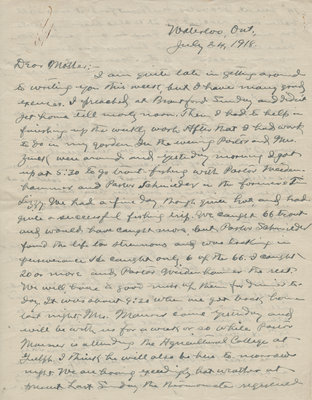 Waterloo, Ont.,
July 24, 1918.
Dear Mother:-
I am quite late in getting around
to writing you this week, but I have many good
excuses. I preached at Brantford Sunday and didn't
get home till noon. Then I had to help in
finishing up the weekly work. After that I had work
to do in my garden. In the evening Pastor and Mrs.
were around and yesterday morning I got
up at 5:30 to go trout fishing with Pastor
and Pastor Schmieder in the former's
We had a fine day though quite hot and had
quite a successful fishing trip. We caught 66 trout
and would have caught more but Pastor Schmieder
found the life too strenuous and was lacking in
perseverance. He caught only 6 of the 66. I caught
20 or more and Pastor the rest.
We will have a good mess of them for dinner to-
day. It was about 9:30 when we got back home
last night. Mrs. came yesterday and
will be with us for a week or so while Pastor
is attending the Agricultural College at
Guelph. I think he will also be here to-morrow
night. We are having exceedingly hot weather at
present. Last Sunday the thermometer registered